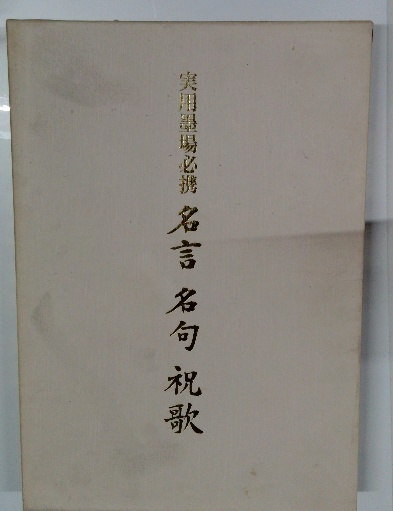 実用墨場必携 名言 名句 祝歌